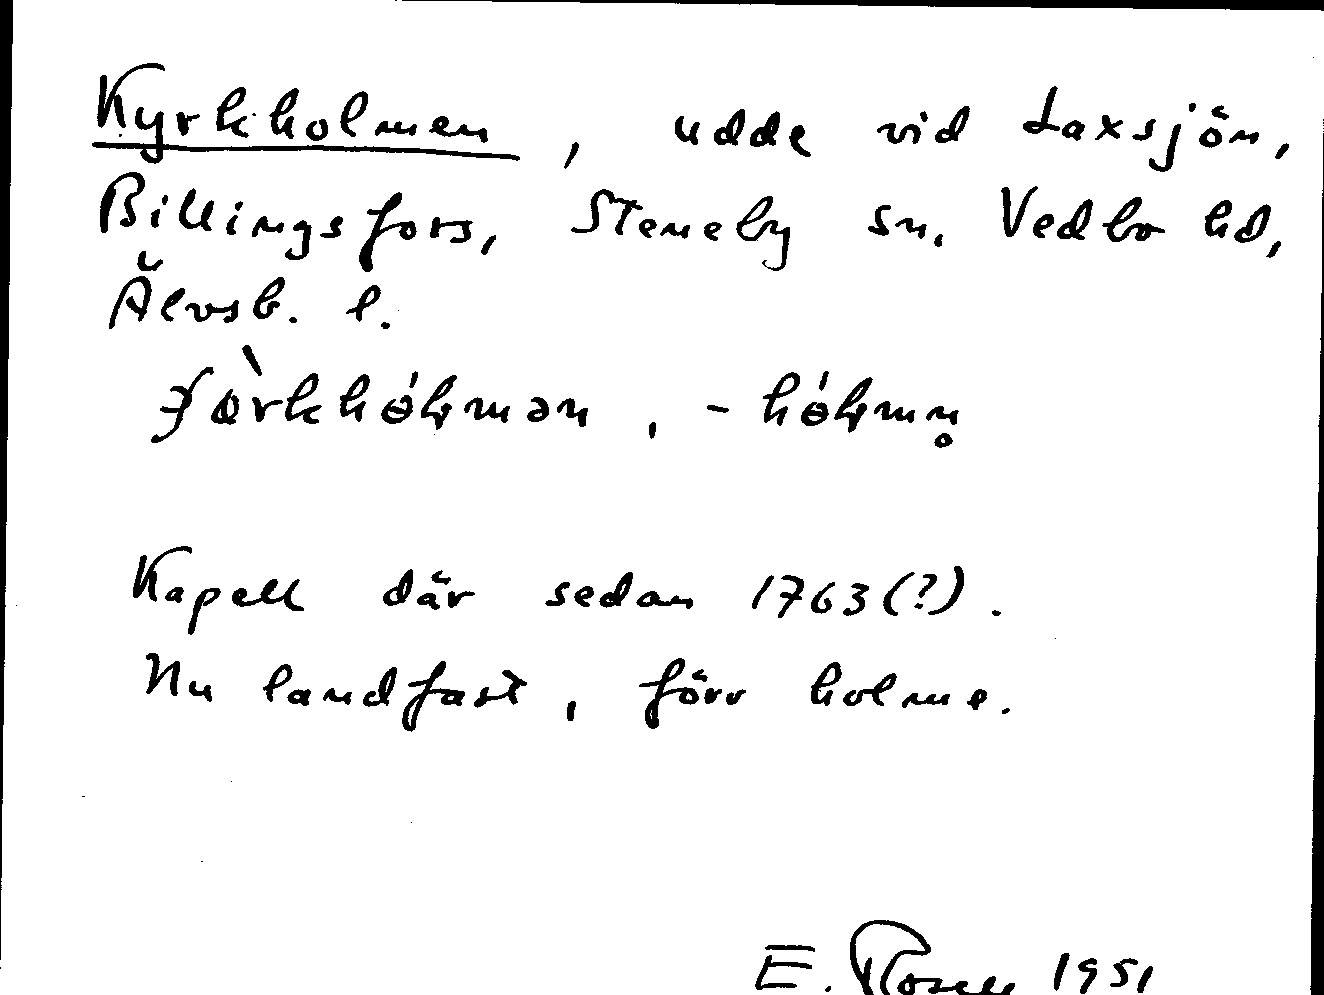 Kyrkholmen, udde vid Laxsjön,
Billingsfors, Steneby sn, Vedbo hd,
Älvsb. l.
Kapell där sedan 1763(?).
Nu landfast, förr holme.
E. Rosell 1951